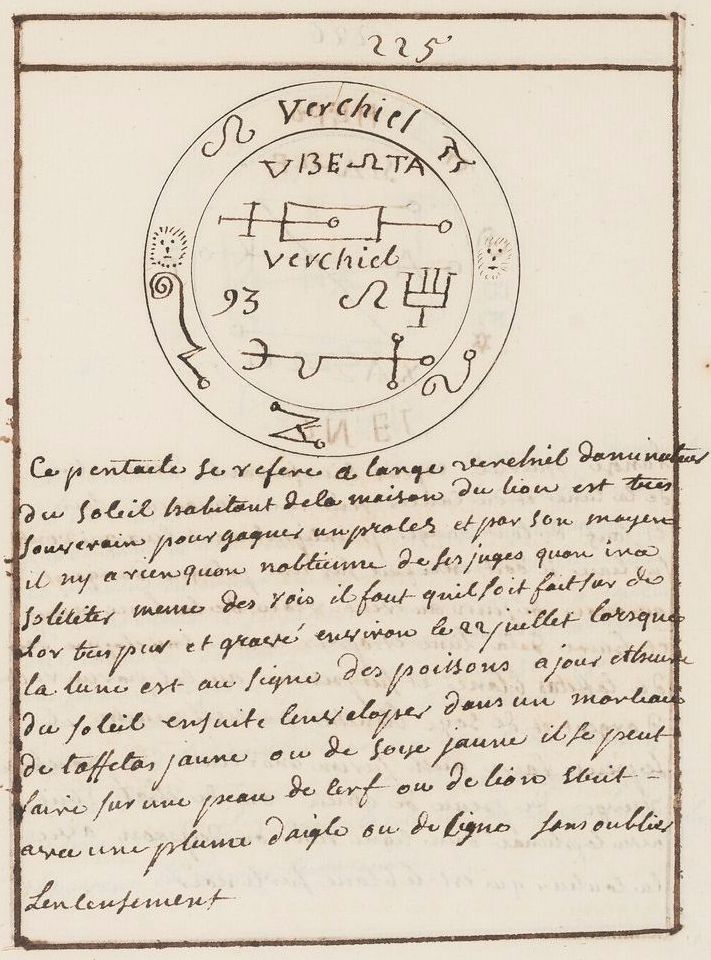 225
Verchiel
VBEΩTA
verchiel
93
Ce pentacle se refere a lange verchiel dominateur
du soleil habitant dela maison du lion est tres
souverain pour gagner un proces et par son moyen
il ny a rien quon nobtienne de ses juges quon ira
soliciter meme des rois il faut quil soit fait sur de
lor tres pur et gravé environ le 22 juillet lorsque
la lune est au signe des poissons a jour et heure
du soleil ensuite lenveloper dans un morceau
de taffetas jaune ou de soye jaune il se peut
faire sur une peau de cerf ou de lion ecrit
avec une plume daigle ou de cigne sans oublier
Lencensement